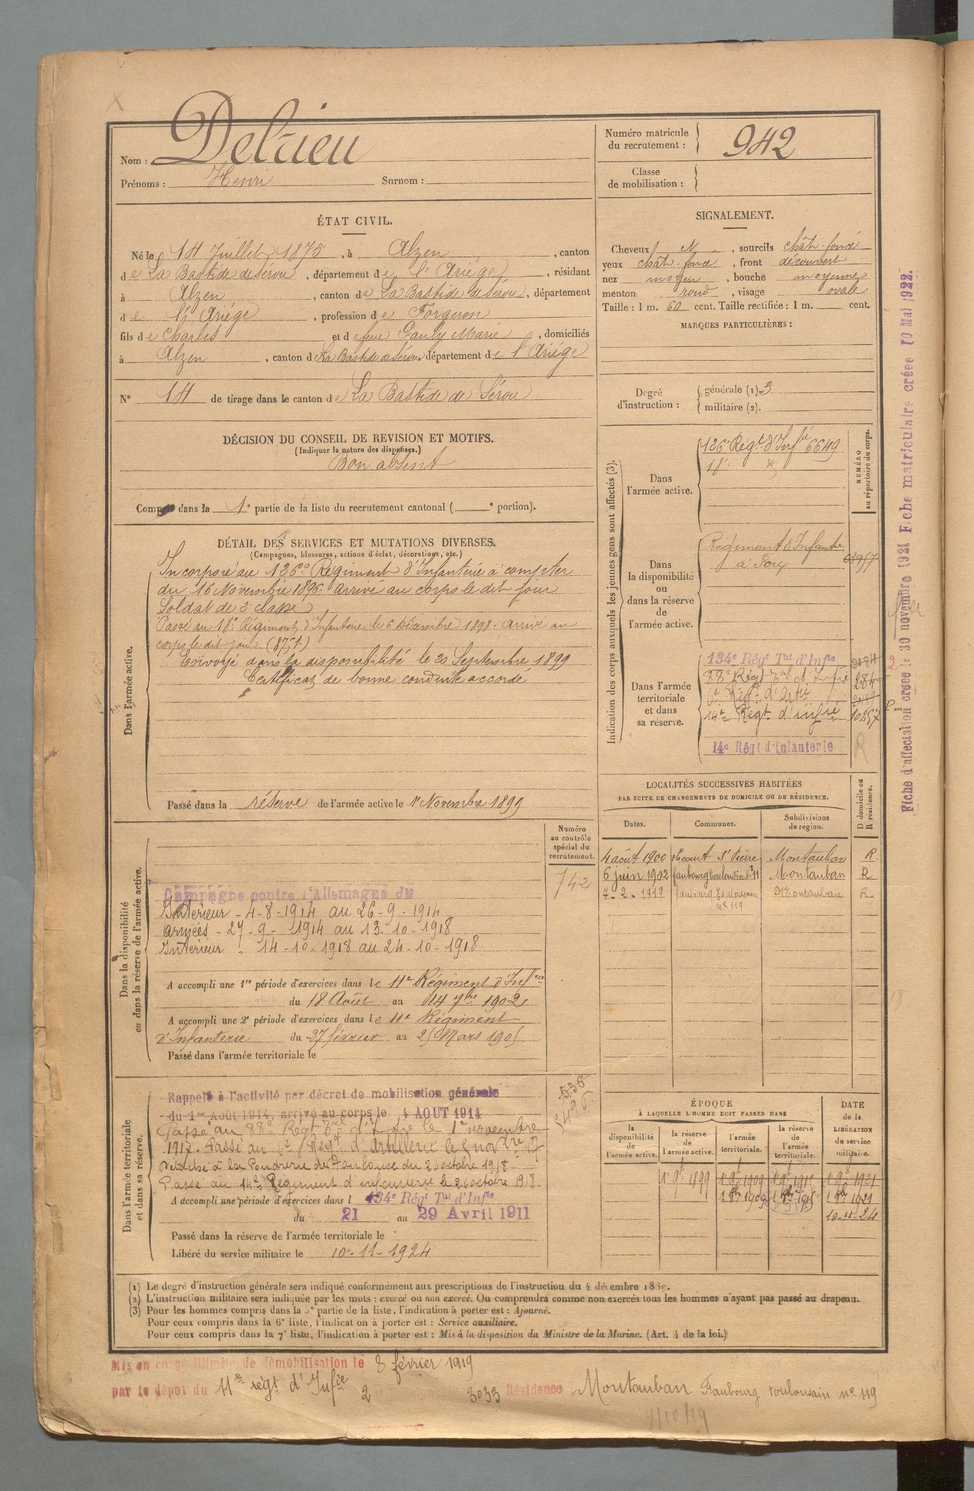 Nom : Delrieu
Prénoms : Henri Surnom :
Numéro matricule
du recrutement : 942
Classe
de mobilisation :
ÉTAT CIVIL.
Né le 14 Juillet 1875, à Alzen, canton
de La Bastide de Sérou, département de l'Ariège, résidant
à Alzen, canton de La Bastide de Sérou, département
de l'Ariège, profession de Forgeron
fils de Charles et de feue Gauly Marie, domiciliés
à Alzen, canton de La Bastide de Sérou, département de l'Ariège
N° 14 de tirage dans le canton de La Bastide de Sérou
SIGNALEMENT.
Cheveux N, sourcils chât. foncé
yeux chât. foncé, front découvert
nez moyen, bouche moyenne
menton rond, visage ovale
Taille : 1 m. 60 cent. Taille rectifiée : 1 m. cent.
MARQUES PARTICULIÈRES :
Degré
d'instruction :
générale (1) 3
militaire (2).
DÉCISION DU CONSEIL DE REVISION ET MOTIFS.
(Indiquer la nature des dispenses.)
Bon absent
Compris dans la 1e partie de la liste du recrutement cantonal ( e portion).
DÉTAIL DES SERVICES ET MUTATIONS DIVERSES.
(Campagnes, blessures, actions d'éclat, décorations, etc.)
Dans l'armée active.
Incorporé au 126e Régiment d'Infanterie à compter
du 16 Novembre 1896 arrivé au corps le dit jour
Soldat de 2e classe
Passé au 18e Régiment d'Infanterie le 6 Décembre 1898. Arrivé au
corps le dit jour
Envoyé dans la disponibilité le 20 Septembre 1899
Certificat de bonne conduite accordé
Passé dans la réserve de l'armée active le 1er Novembre 1899
Indication des corps auxquels les jeunes gens sont affectés (3).
NUMÉRO
au répertoire du corps.
Dans
l'armée active.
126e Régt d'Infie 6649
18e
Dans
la disponibilité
ou
dans la réserve
de
l'armée active.
Régiment d'Infanterie
Dans l'armée
territoriale
et dans
sa réserve.
134e Régt Tal d'Infie
88e Régt
6e Régt d'Artie
14e Régt d'infie 10.857
14e Régt d'Infanterie R
Fiche d'affectation créée le 30 novembre 1921 Fiche matriculaire créée 10 Mai 1922.
LOCALITÉS SUCCESSIVES HABITÉES
PAR SUITE DE CHANGEMENTS DE DOMICILE OU DE RÉSIDENCE.
D domicile ou
R résidence.
Dates. Communes. Subdivisions
de région.
4 août 1900 Lacourt St Pierre Montauban R.
6 juin 1902 faubourg toulousain Montauban R
7-2-1919 faubourg Toulousain Montauban R.
n° 119
Dans la disponibilité
ou dans la réserve de l'armée active.
Numéro
au contrôle
spécial du
recrutement.
742
Campagne contre l'Allemagne du
Intérieur - 4-8-1914 au 26-9-1914
armées - 27-9-1914 au 13-10-1918
Intérieur : 14-10-1918 au 24-10-1918
A accompli une 1re période d'exercices dans le 11e Régiment d'Infrie
du 18 Août au 14 7bre 1902
A accompli une 2e période d'exercices dans le 11e Régiment
d'Infanterie du 27 février au Mars 1905
Passé dans l'armée territoriale le
Dans l'armée territoriale
et dans sa réserve.
Rappelé à l'activité par décret de mobilisation générale
du 1er Août 1914, arrivé au corps le 4 AOUT 1914
Passé au 88e Régt le 1er novembre
1917. Passé au 6e Régt d'Artillerie le
à la Poudrerie de Toulouse du 2 octobre 1918
Passé au 14e Régiment d'infanterie le 26 octobre 1918.
A accompli une période d'exercices dans l 134e Régt Tal d'Infie
du 21 au 29 Avril 1911
Passé dans la réserve de l'armée territoriale le
Libéré du service militaire le 10-11-1924
ÉPOQUE
À LAQUELLE L'HOMME DOIT PASSER DANS
DATE
de la
LIBÉRATION
du service
militaire.
la
disponibilité
de l'armée active.
la réserve
de
l'armée active.
l'armée
territoriale.
la réserve
de
l'armée
territoriale.
1 9bre 1899 1 9bre 1909 1 9bre 1915 1 9bre 1921
10-11-24
(1) Le degré d'instruction générale sera indiqué conformément aux prescriptions de l'instruction du 4 décembre 1889.
(2) L'instruction militaire sera indiquée par les mots : exercé ou non exercé. On comprendra comme non exercés tous les hommes n'ayant pas passé au drapeau.
(3) Pour les hommes compris dans la 5e partie de la liste, l'indication à porter est : Ajourné.
Pour ceux compris dans la 6e liste, l'indication à porter est : Service auxiliaire.
Pour ceux compris dans la 7e liste, l'indication à porter est : Mis à la disposition du Ministre de la Marine. (Art. 4 de la loi.)
Mis en congé illimité de démobilisation le 8 février 1919
par le dépôt du 11e régt d'Infie 2 3033 Résidence Montauban Faubourg toulousain n° 119